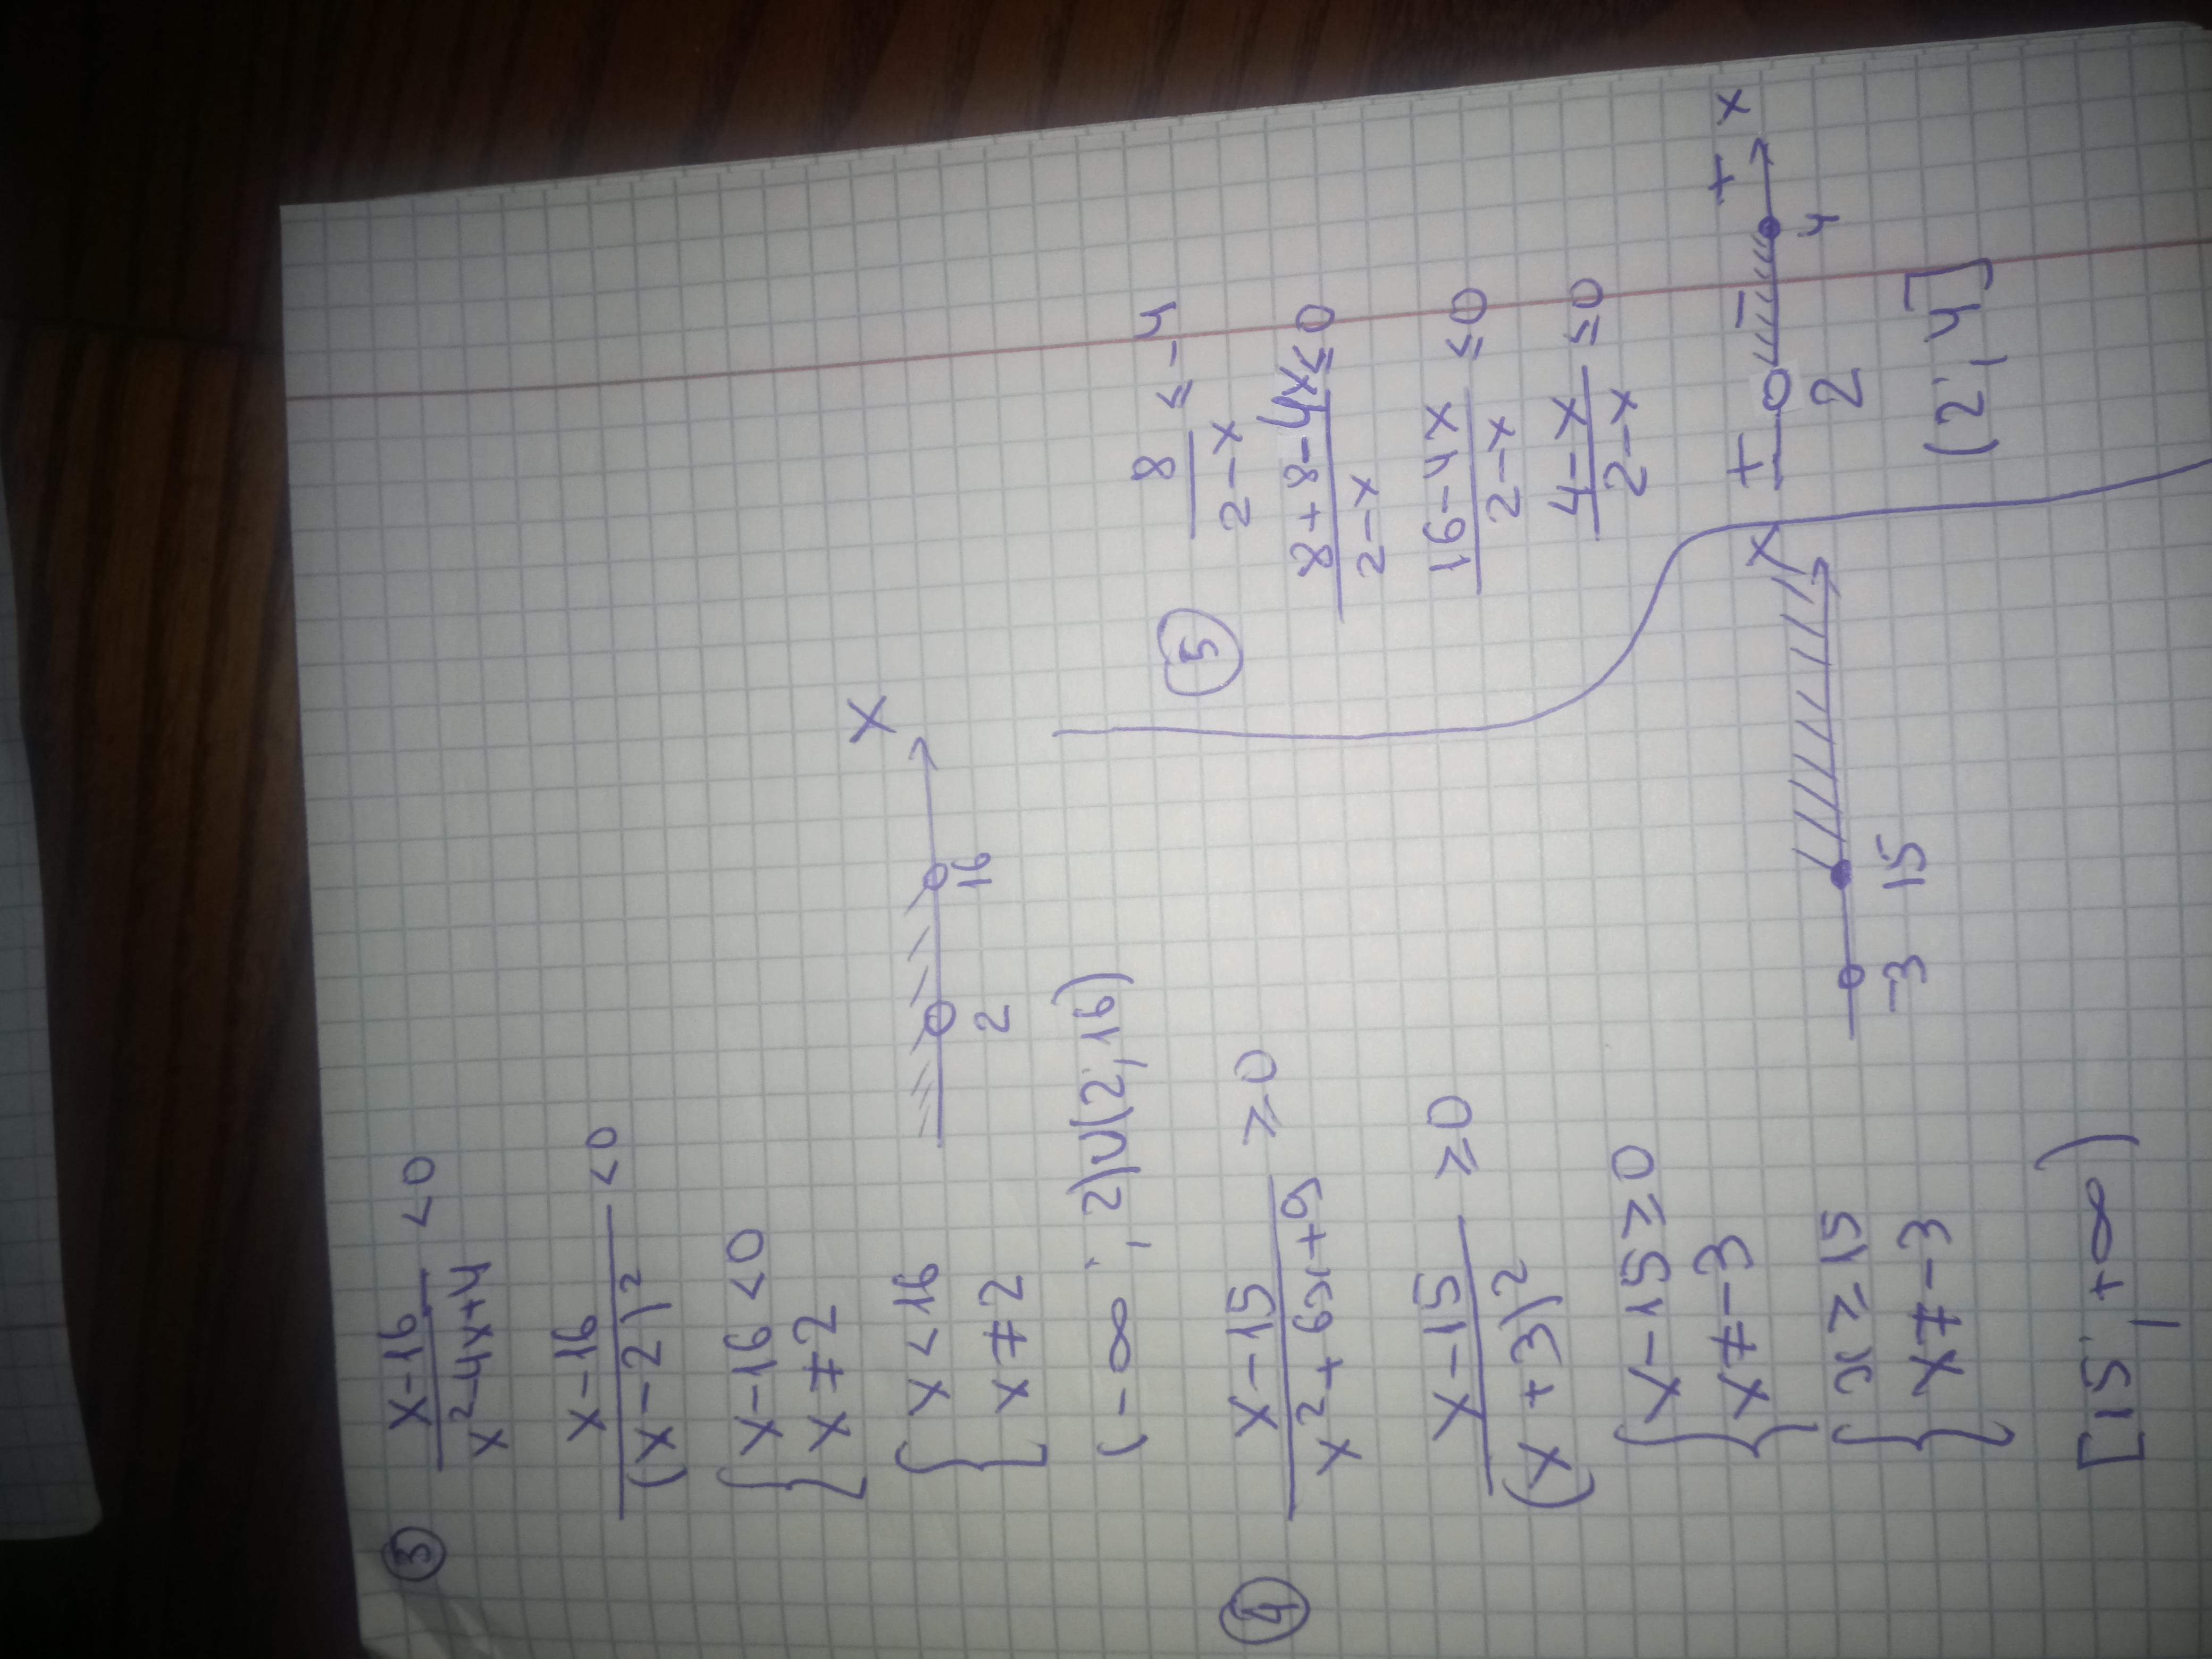 ③ (x-16)/(x²-4x+4) <0
(x-16)/(x-2)² <0
{ x-16<0
x≠2
{ x<16
x≠2
2 16 x
(-∞; 2)∪(2; 16)
④ (x-15)/(x²+6x+9) ≥0
(x-15)/(x+3)² ≥0
{ x-15≥0
x≠-3
{ x≥15
x≠-3
-3 15 x
[15; +∞)
⑤ 8/(2-x) ≤ -4
(8+8-4x)/(2-x) ≤0
(16-4x)/(2-x) ≤0
(4-x)/(2-x) ≤0
+ - + x
2 4
(2; 4]